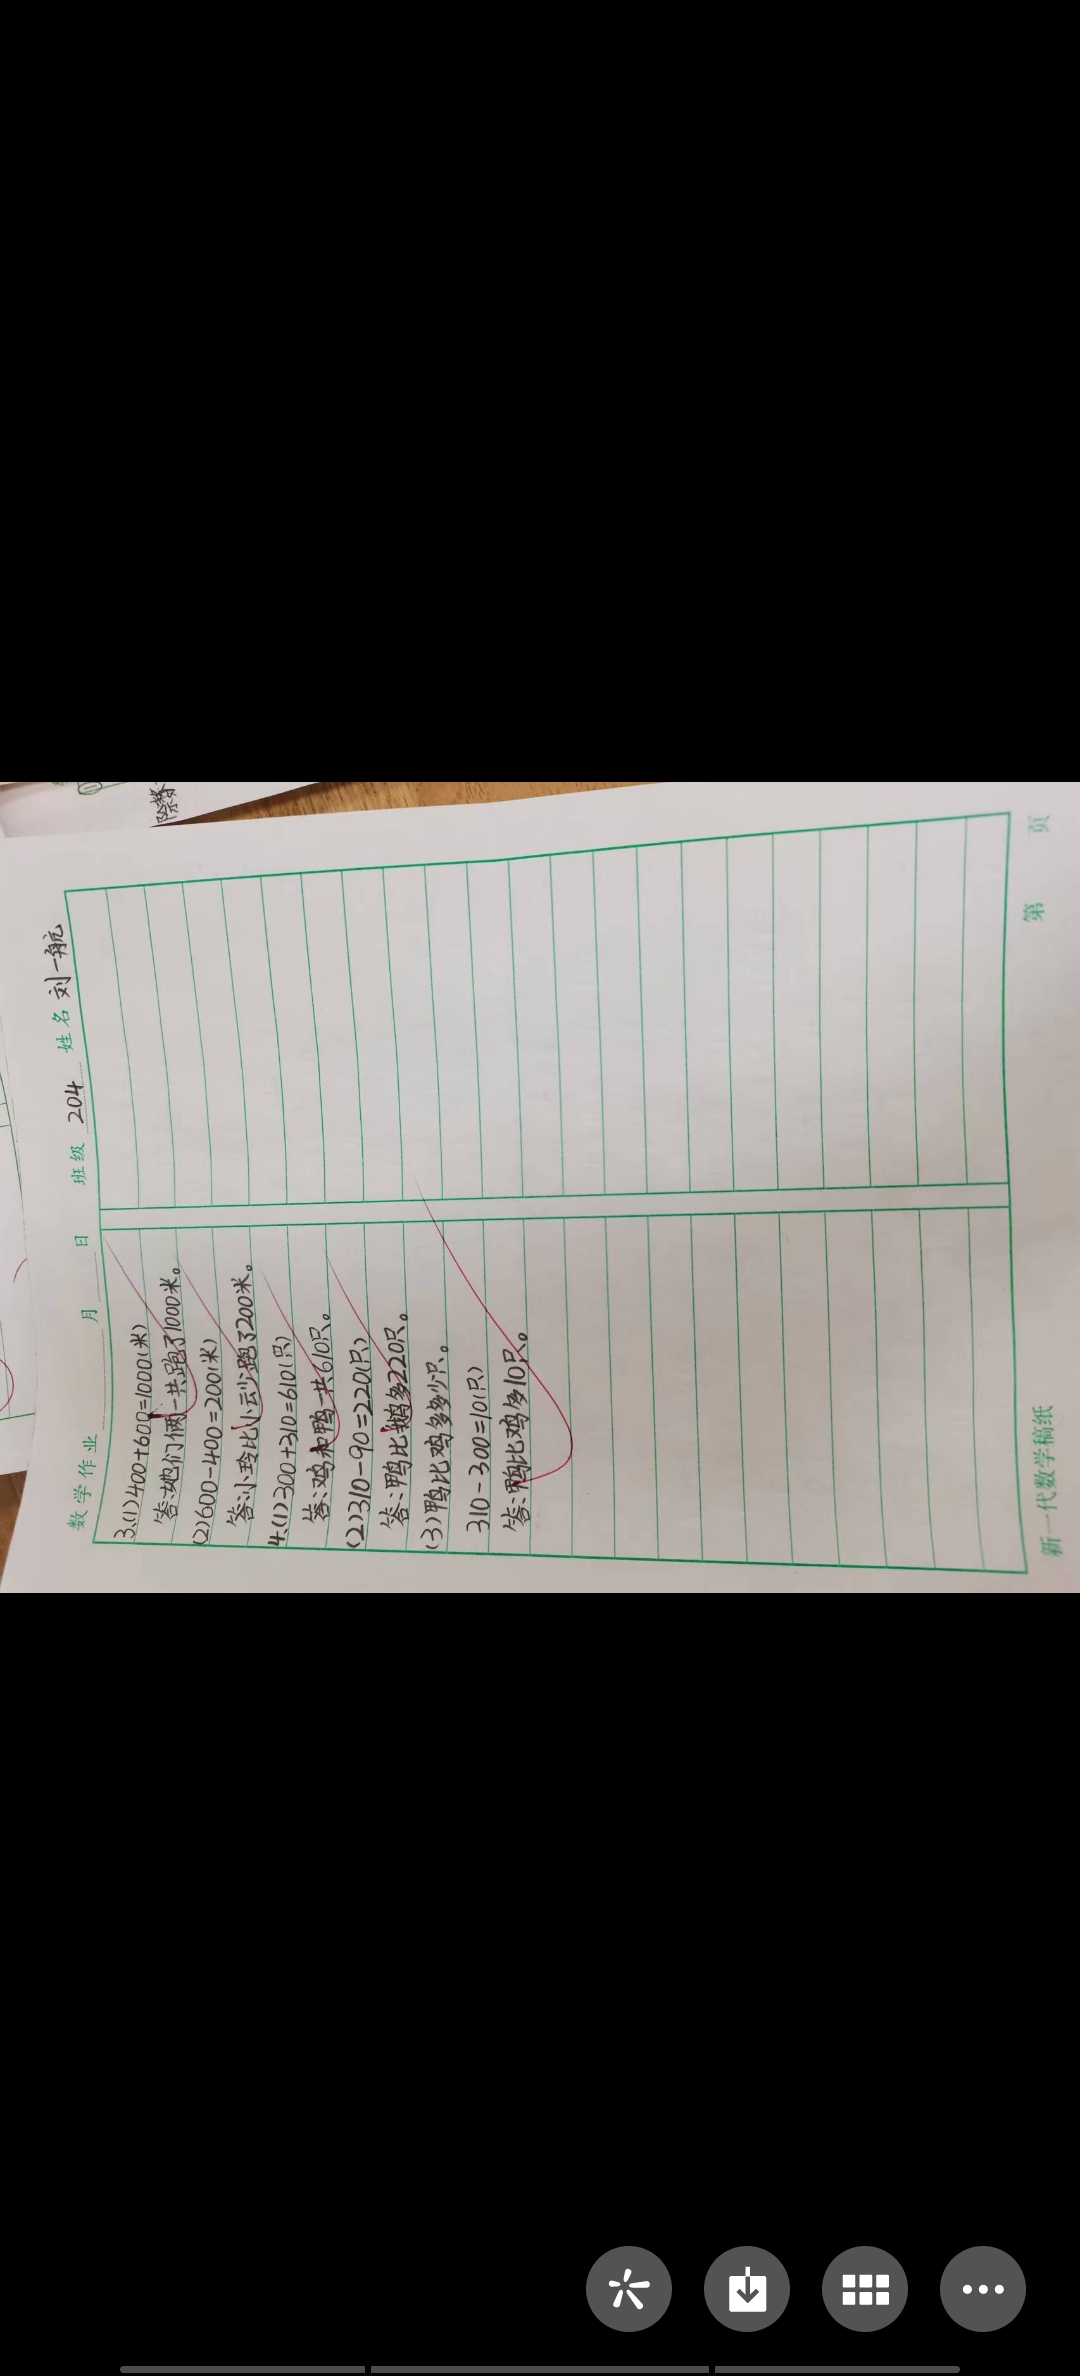 数学作业 月 日 班级 204 姓名 刘一航
3.(1)400+600=1000(米)
答:她们俩一共跑了1000米。
(2)600-400=200(米)
答:小玲比小云少跑了200米。
4.(1)300+310=610(只)
答:鸡和鸭一共610只。
(2)310-90=220(只)
答:鸭比鹅多220只。
(3)鸭比鸡多多少只。
310-300=10(只)
答:鸭比鸡多10只。
新一代数学稿纸 第 页